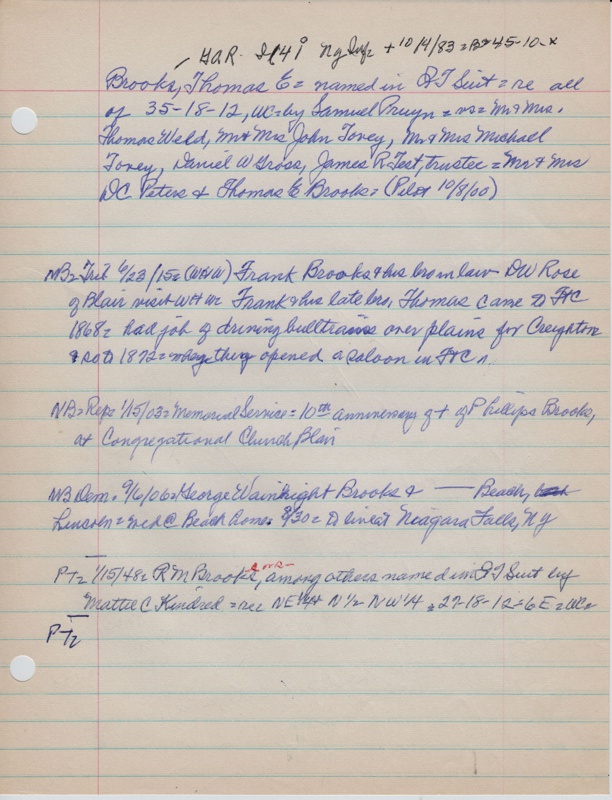 GAR. I 141 Ny Inf= + 10/4/83=B=45-10-x
Brooks, Thomas E= named in QT Suit=re all
of 35-18-12, WC=by Samuel Pruyn=vs=Mr & Mrs.
Thomas Weld, Mr & Mrs John Tovey, Mr & Mrs Michael
Tovey, Daniel W Gross, James R Test, trustee=Mr & Mrs
DC Peters & Thomas E Brooks= (Pilot 10/8/00)
NB=Trib 6/23/15= (W&W) Frank Brooks & his bro in law DW Rose
of Blair visit W&W Frank & his late bro, Thomas came to FtC
1868= had job of driving bull trains over plains for Creighton
& so to 1872= they opened a saloon in FtC
NB=Rep= 1/15/03=Memorial Service=10th anniversary of + of Phillips Brooks,
at Congregational Church Blair
NB Dem. 9/6/06=George Wainright Brooks & — Beach,
Lincoln=wed @ Beach home 8/30= to live at Niagara Falls, NY
PT= 1/15/48= R M Brooks, among others named in QT Suit by
Mattie C Kindred=re= NE 1/4 N 1/2 NW 1/4 = 27-18-12=6E=WC=
PT=